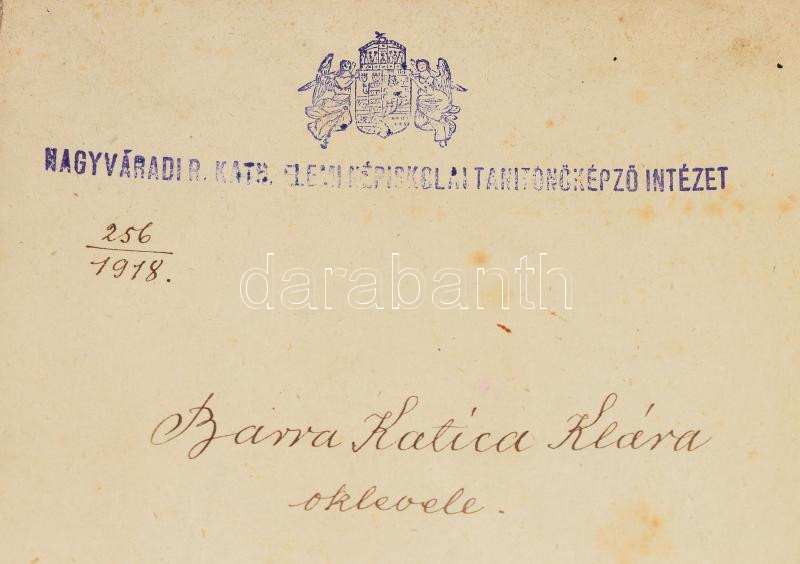 NAGYVÁRADI R. KATH. ELEMI NÉPISKOLAI TANITÓNŐKÉPZŐ INTÉZET
256
1918.
darabanth
Barra Katica Klára
oklevele.